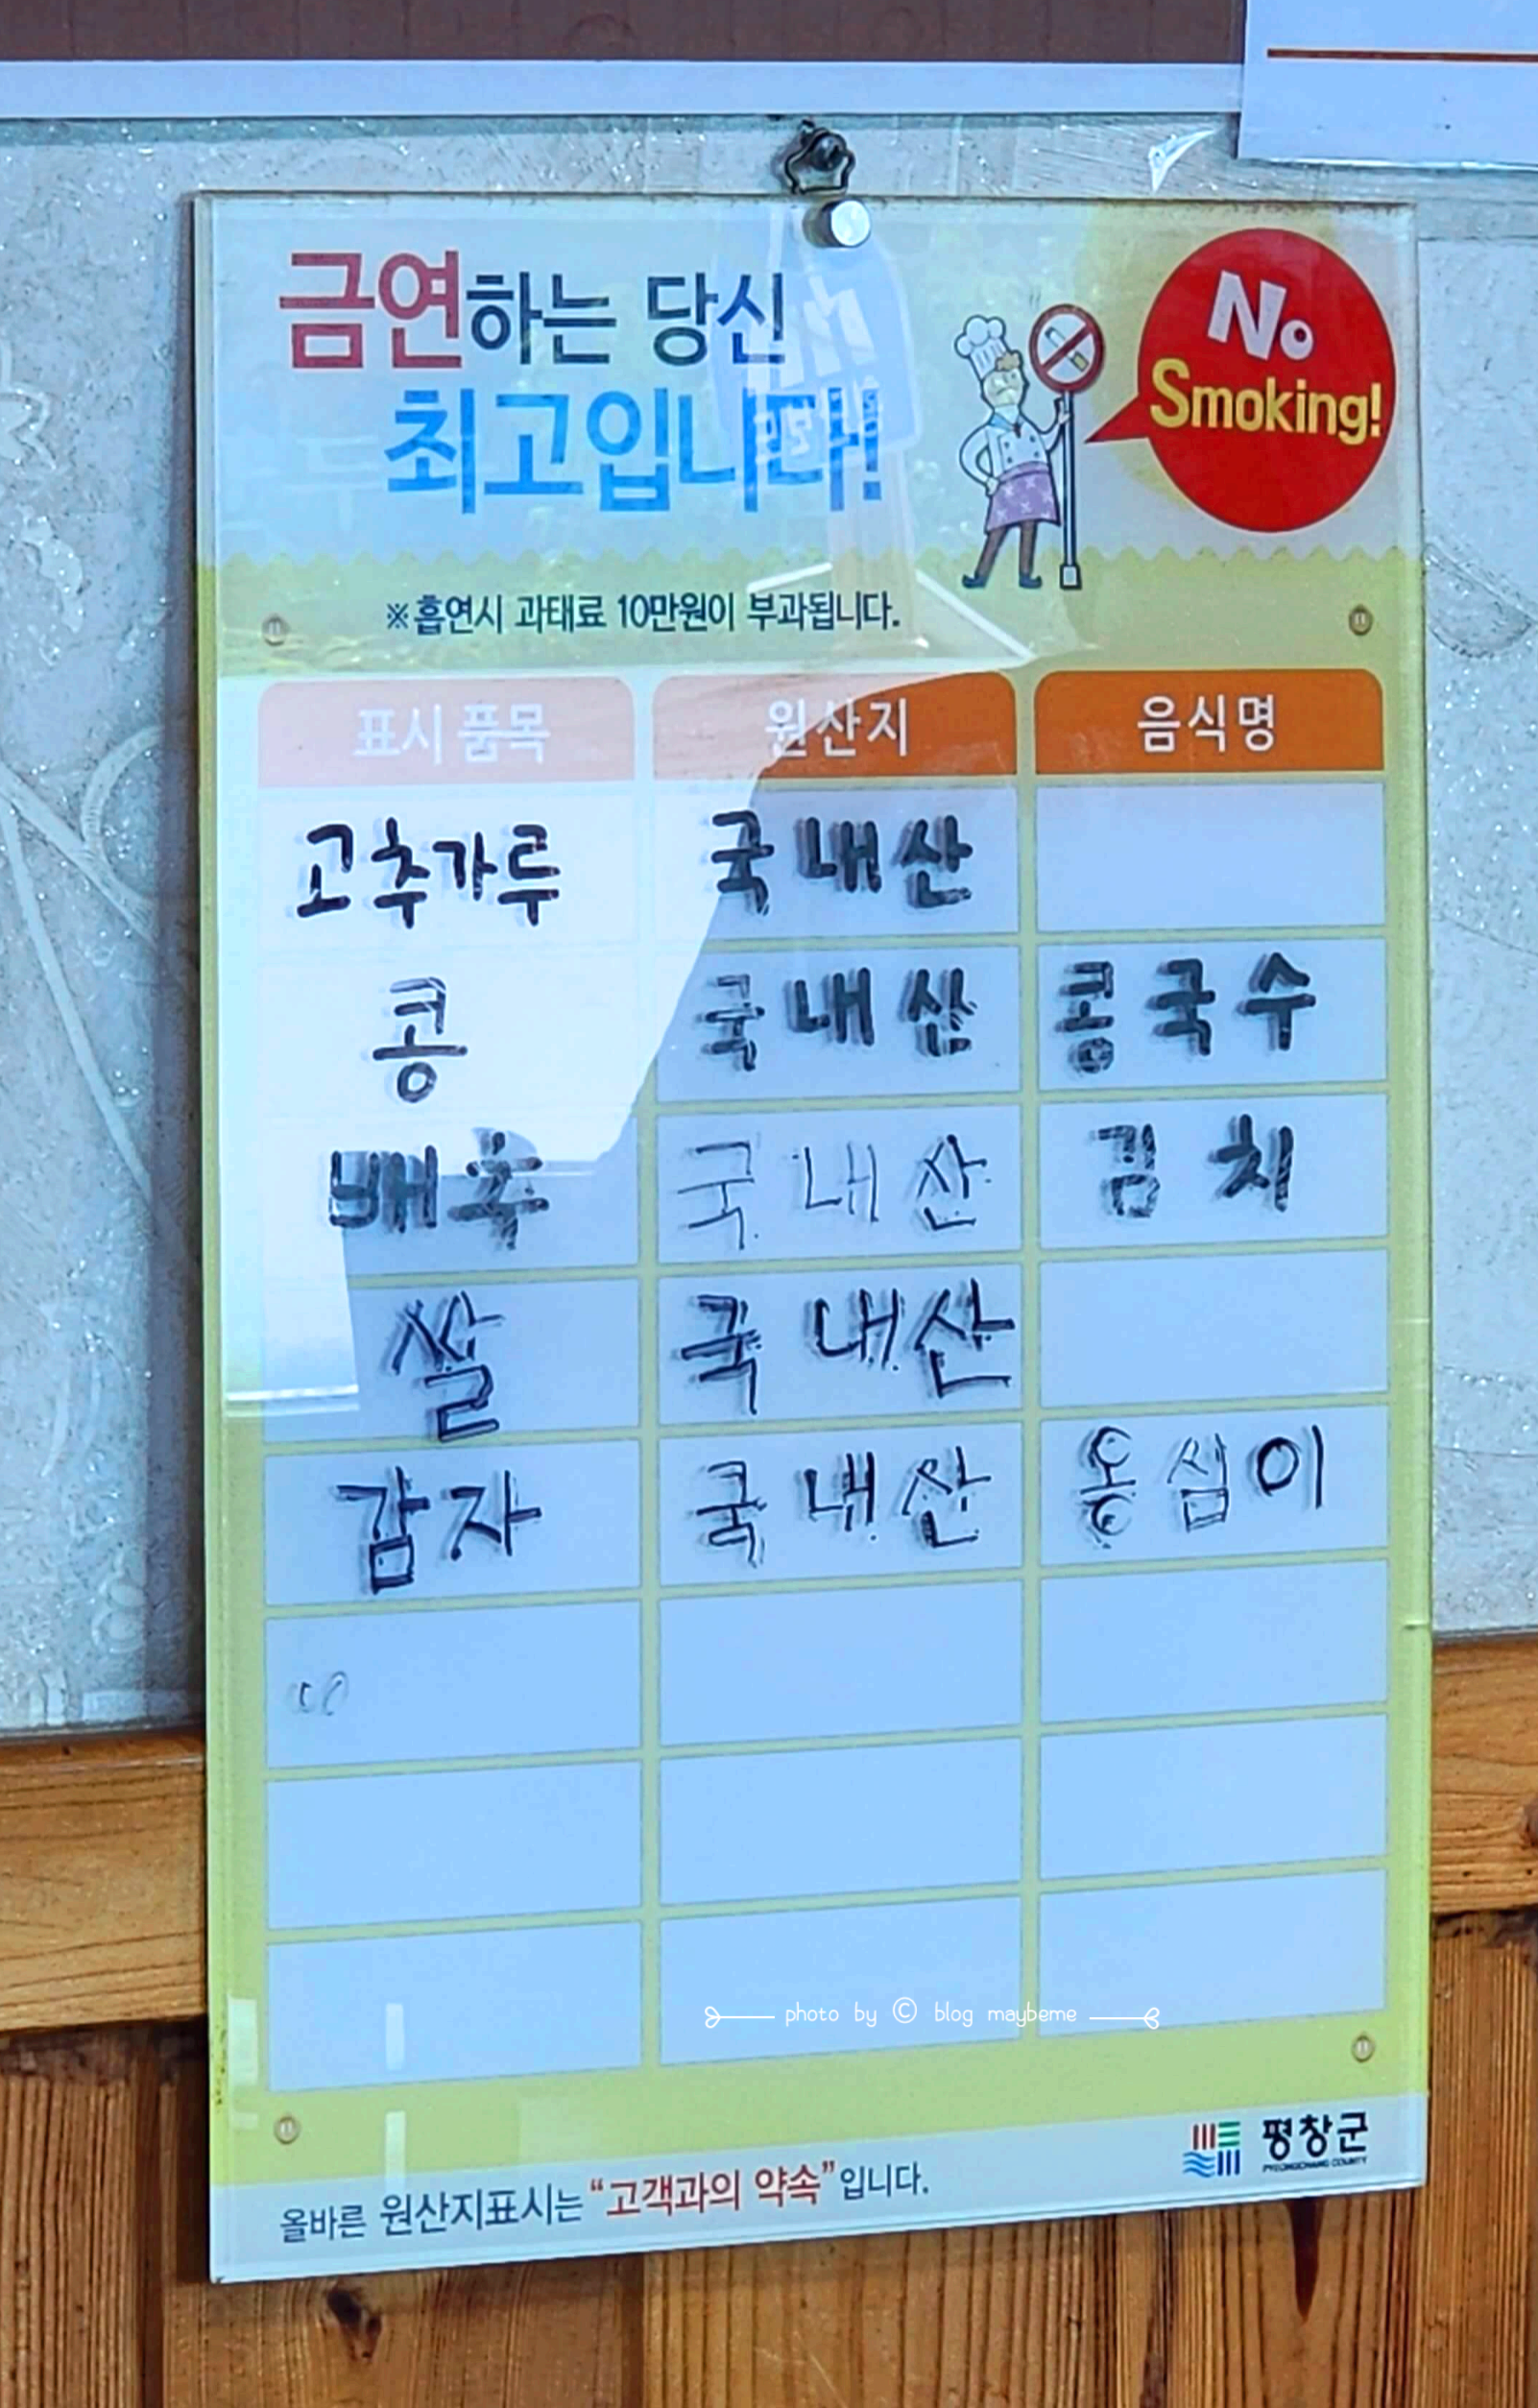 금연하는 당신
최고입니다!
No
Smoking!
※흡연시 과태료 10만원이 부과됩니다.
표시품목 원산지 음식명
고추가루 국내산
콩 국내산 콩국수
배추 국내산 김치
쌀 국내산
감자 국내산 옹심이
photo by © blog maybeme
평창군
PYEONGCHANG COUNTY
올바른 원산지표시는 “고객과의 약속”입니다.